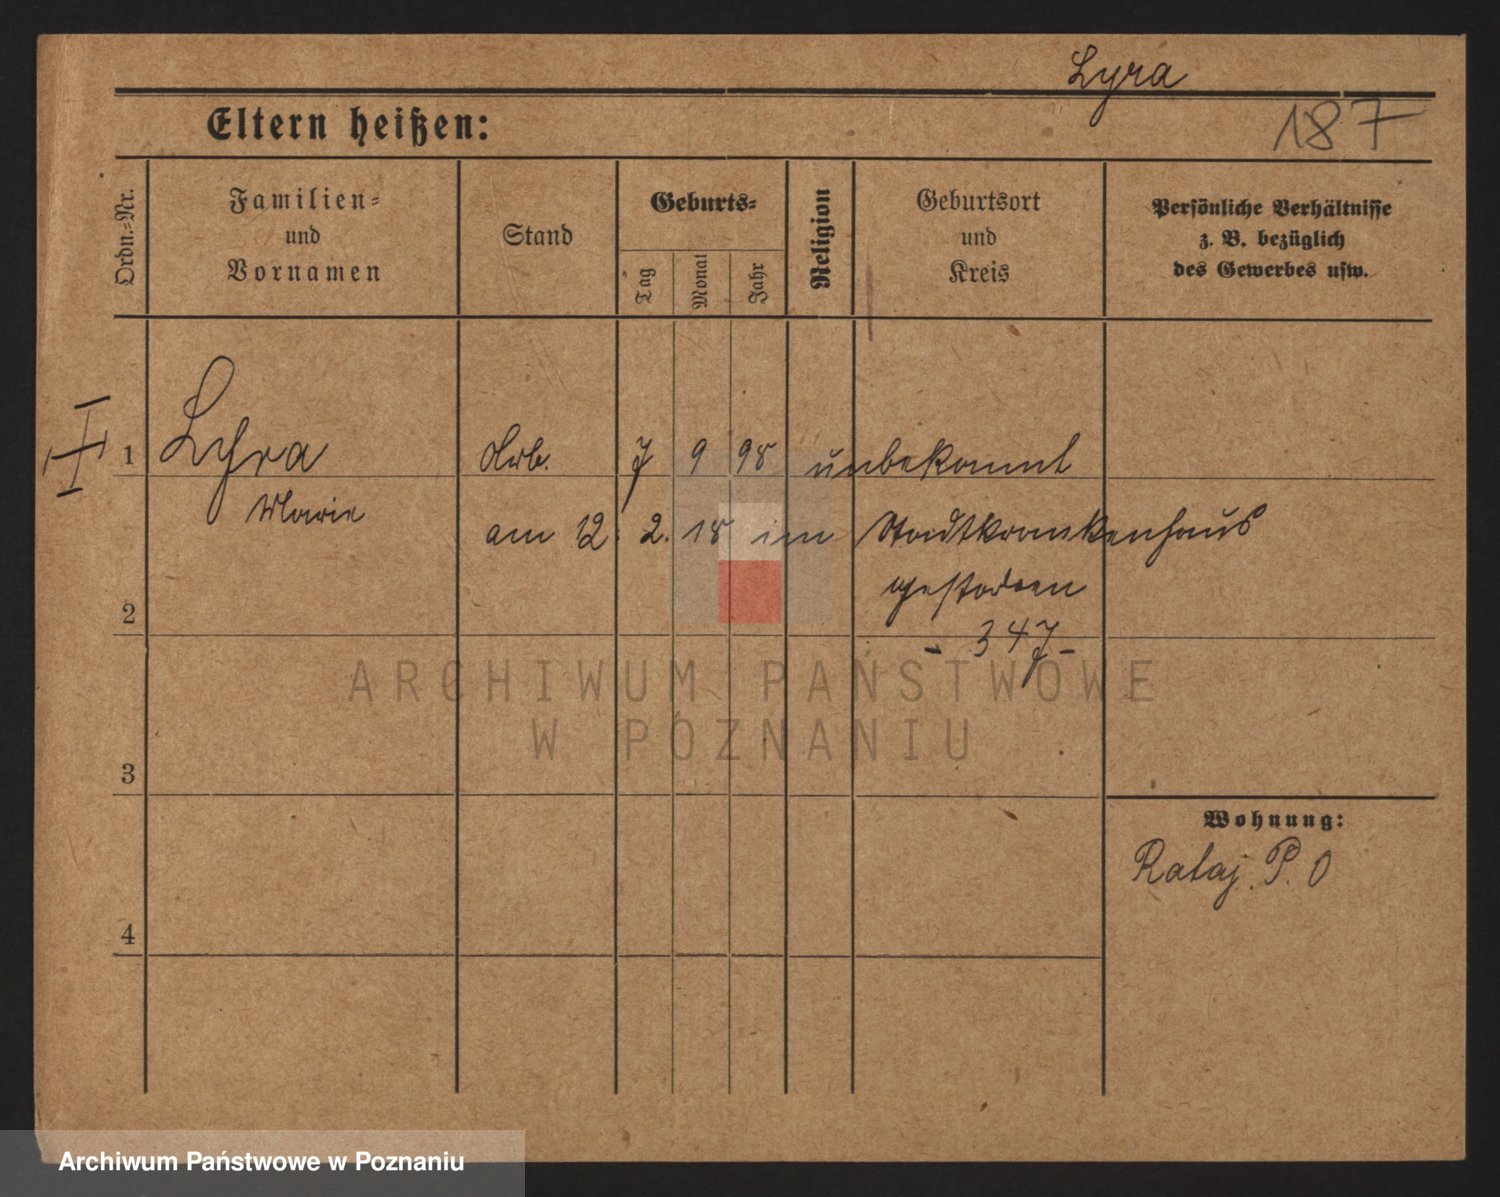 Lyra
187
Eltern heißen:
Ordn.-Nr.
Familien-
und
Vornamen
Stand
Geburts-
Tag
Monat
Jahr
Religion
Geburtsort
und
Kreis
Persönliche Verhältnisse
z. B. bezüglich
des Gewerbes usw.
1
Lyra
Arb.
7
9
98
unbekannt
Marie
am 12. 2. 18 im Stadtkrankenhaus
gestorben
2
- 347 -
ARCHIWUM PAŃSTWOWE
W POZNANIU
3
Wohnung:
Rataj. P. 0
4
Archiwum Państwowe w Poznaniu